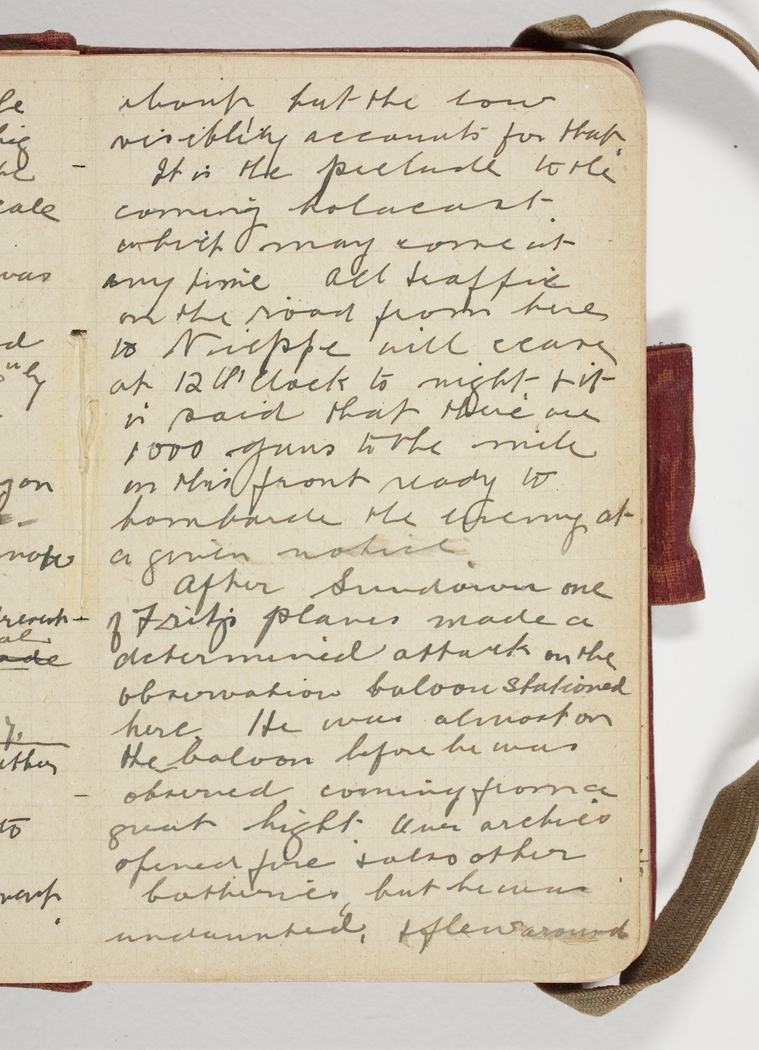 about but the low
visiblity accounts for that.
It is the prelude to the
coming holacast
which may come at
any time All traffic
on the road from here
to Nieppe will cease
at 12 O'Clock to night & it
is said that there are
1000 guns to the mile
on this front ready to
bombarde the enemy at
a given notice
After Sundown one
of Fritz's planes made a
determined attack on the
observation baloon stationed
here. He was almost on
the baloon before he was
observed coming from a
great hight Our archies
opened fire & also other
batteries, but he was
undaunted, & flew around